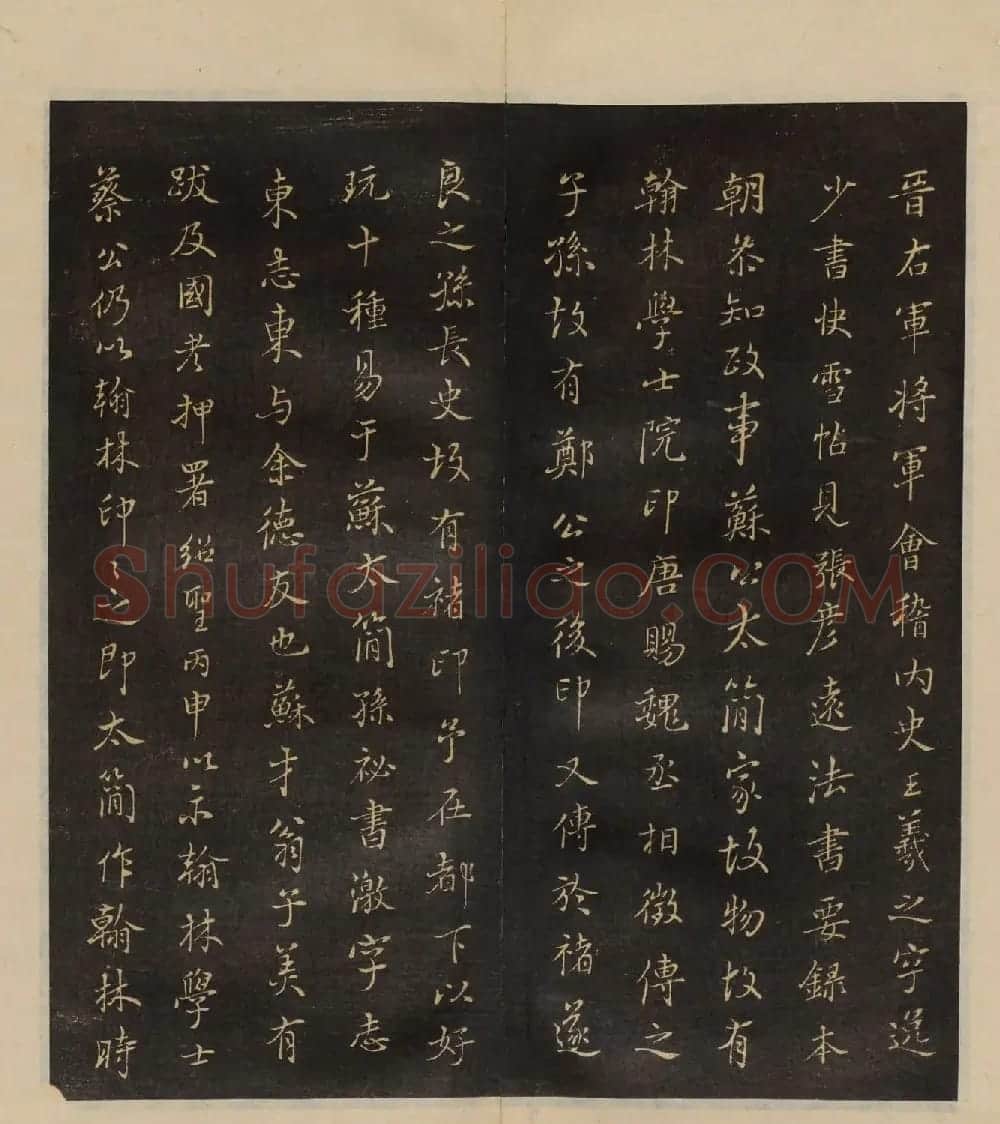 晋右軍將軍會稽内史王羲之字逸
少書快雪帖見張彦遠法書要録本
朝叅知政事蘇公太簡家故物故有
翰林學士院印唐賜魏丞相徵傳之
子孫故有鄭公之後印又傳於褚遂
良之孫長史故有褚印予在都下以好
玩十種易于蘇太簡孫祕書激字志
東志東与余德友也蘇才翁子美有
跋及國老押署紹聖丙申以示翰林學士
蔡公仍以翰林印之即太簡作翰林時
Shufaziliao.COM